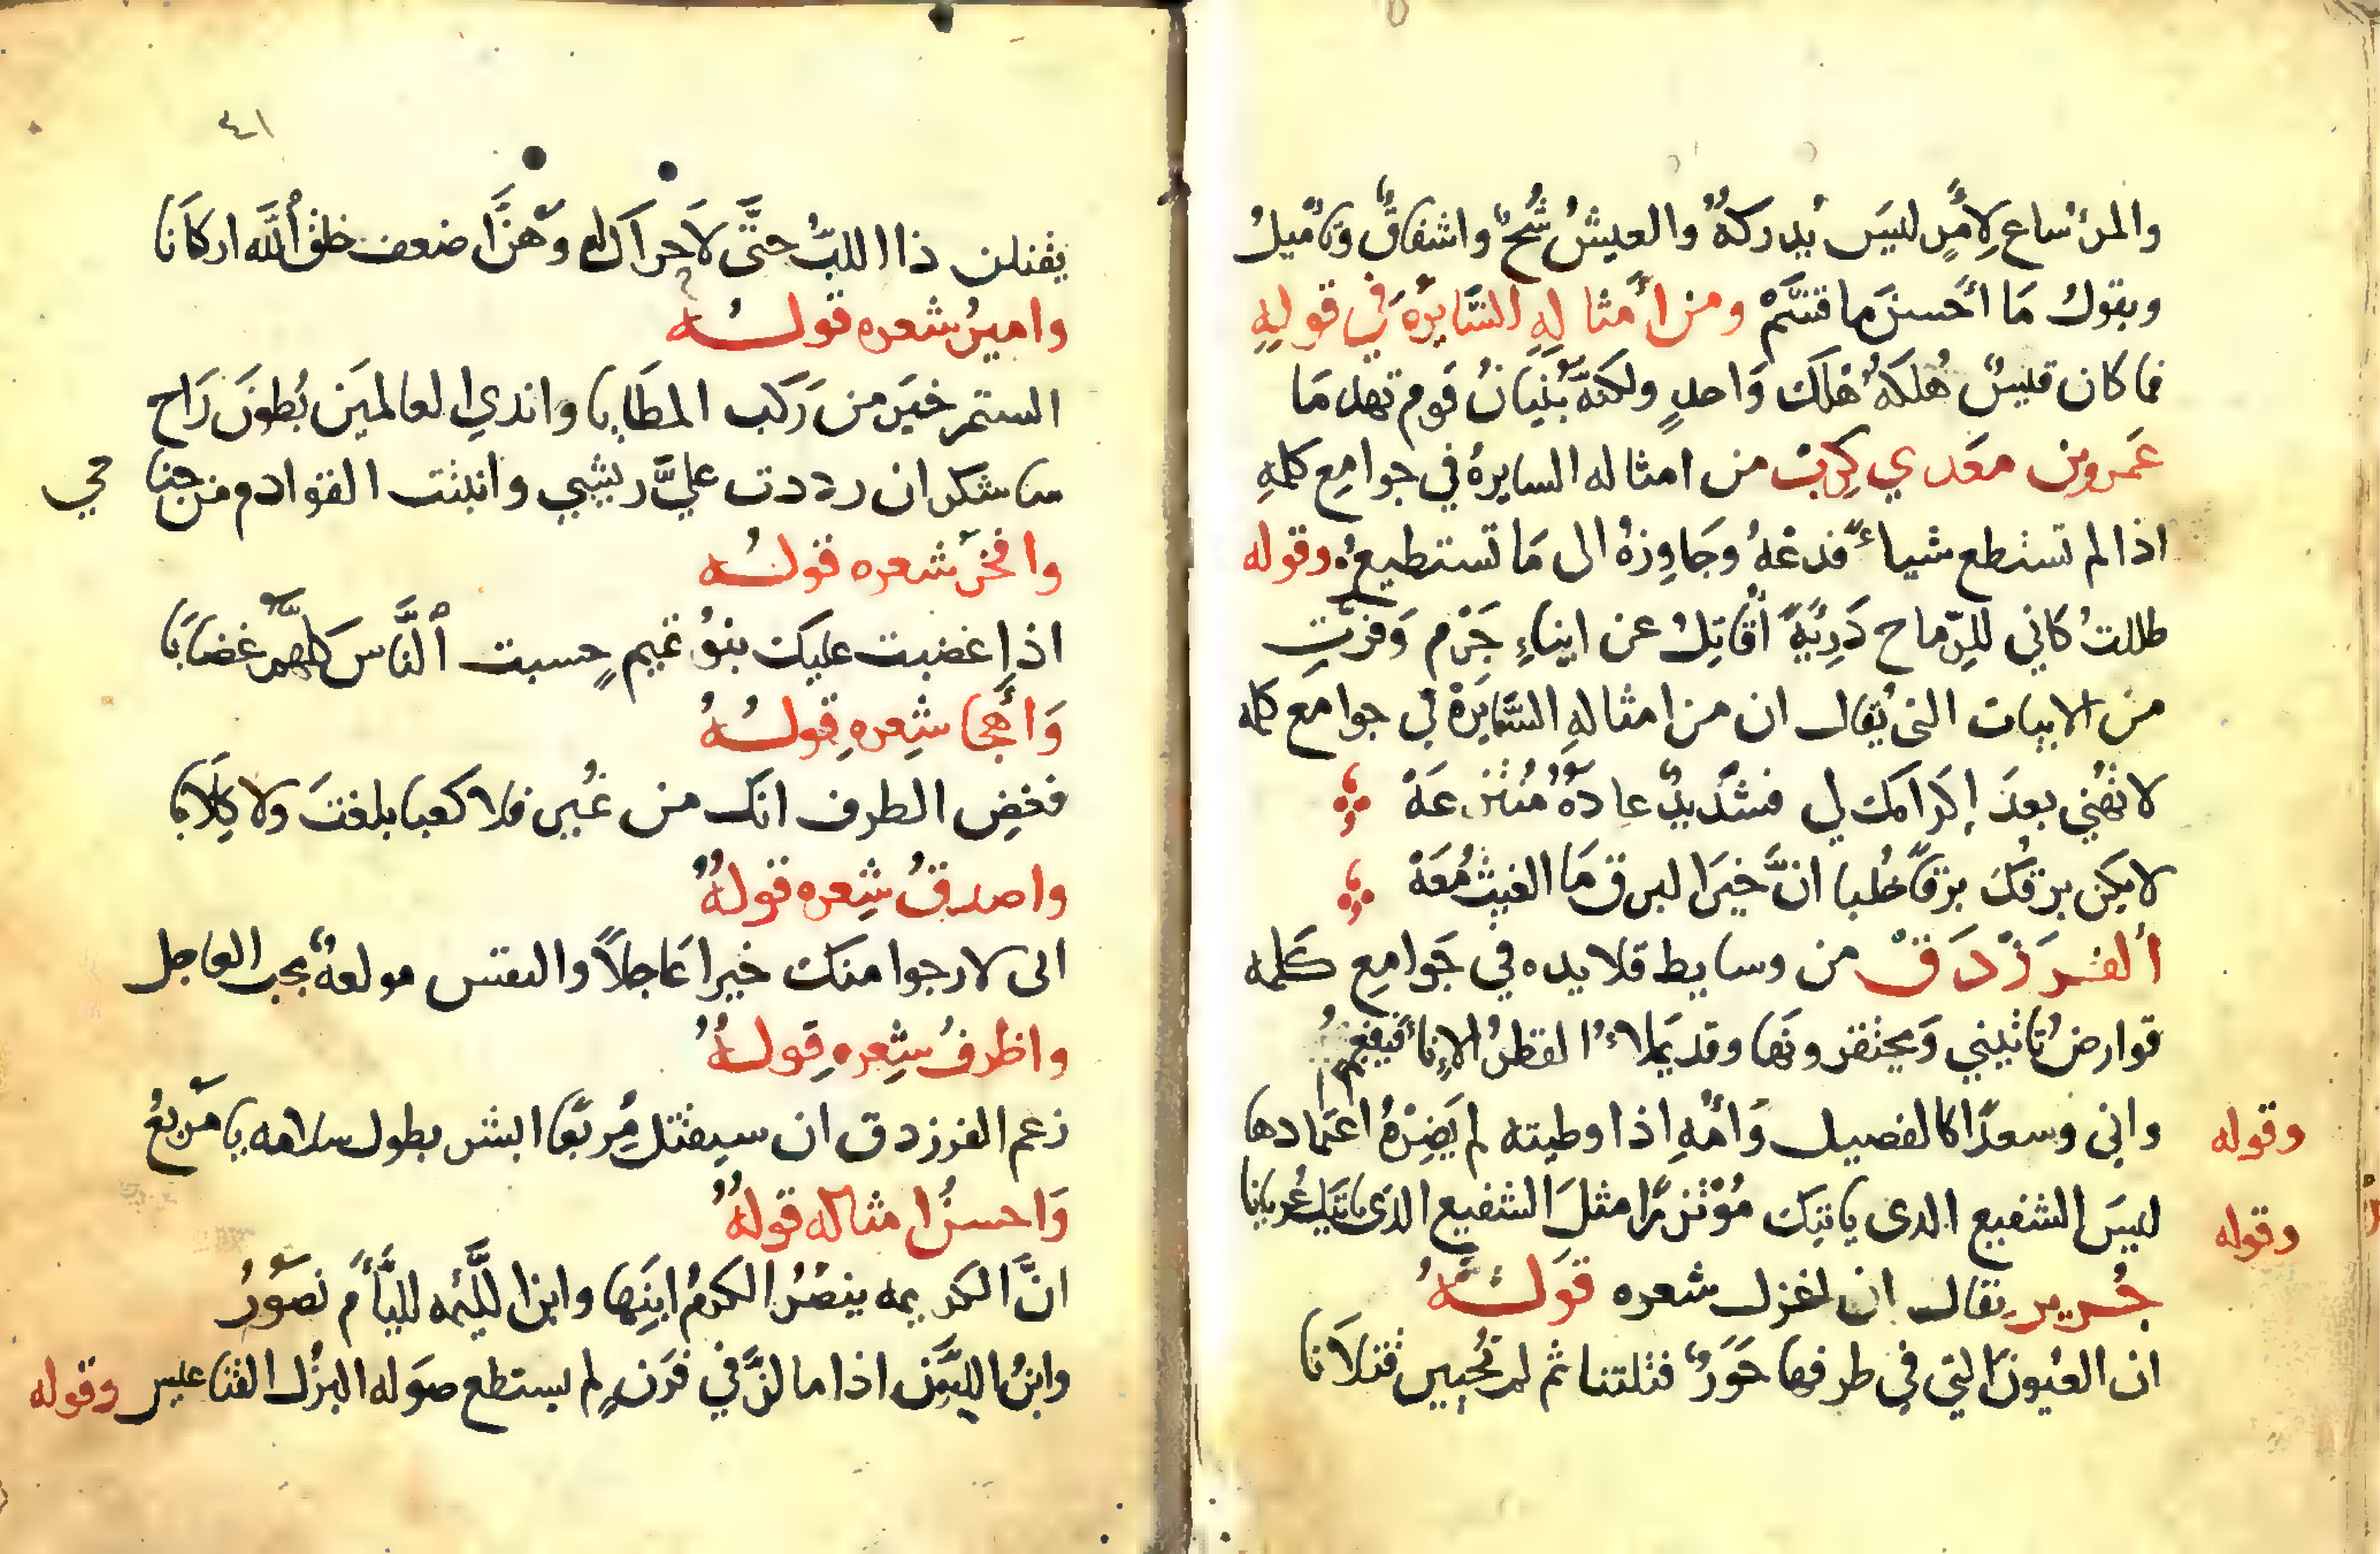 والمرٔ ساع لِامٍر ليسَ يدركهُ والعيشُ شُحٌ واشفاقٌ وتاميلُ
ويقول مَا أحَسنَ ما قسَّمْ ومن أمثالِهِ السَّايرَهُ في قولِهِ
فما كان قيسٌ هُلكهُ هُلكَ وَاحدٍ ولكنَّهُ بُنيَانُ قومٍ تهدمَا
عَمروبن معَدي كِربْ من امثاله السايرهُ في جوامِع كلمِهِ
اذا لم تستطع شياءً فدعْهُ وجَاوِزهُ الى مَا تستطيعُ وقوله
ظللتُ كاني للرِّماح دَرِيَّةً أُقاتِلُ عن ابناءِ جَرْم وَفرَّتِ
من الابيات التى يُقال ان من امثالهِ السَّايَرهْ في جوامع كلمه
لا تهُنِّي بعدَ إكرَامك لي فشَديدٌ عادَهٌ مُنْتزعَهْ
لا يكن برقكَ برقاً خُلبا انَّ خيَرا لبرق مَا الغيثُ مَعَهْ
ألفَرزْدَقْ من وسايط قلايده في جَوامِعِ كَلمِه
قوارضُ تاتيني وَيحتقرونَها وقد يَملاءُ القطرُ الاِناءَ فيفعمُ
وقوله واني وسعدًا كالفصيل وَأمِّهِ اذا وطيته لم يَضِرْهُ اعتمادها
وقوله ليسَ الشفيع الدى ياتيك مُؤتزرًا مثلَ الشفيع الذى ياتيك عُريانا
جُرير يقال ان اغزل شعره قولُهُ
ان العُيونَ التي في طرفها حَوَرٌ قتلتنا ثم لم يُحيين قتلَانا
٤١
يقتلن ذا اللبِّ حتَّى لاَ حراك له وَهنَّ اضعف خلق ألله اركاَنا
وامينُ شعره قولُه
الستم خيَر من رَكب المطَايا واندي العالميَن بُطونَ رَاح
ساشكر ان رددت عليَّ ريشي وانبثت القوادم من جناحي
وافخرُ شعره قولُه
اذا غضبت عليك بنوُ تميم حسبت ألنَّاسَ كلهمُ غضَابَا
وَأهجا شِعرهِ قِولُهُ
فغضِ الطرف انك من نمُير فلا كعبا بلغتَ ولا كِلاَبا
واصدقُ شِعره قولهُ
انى لارجوا منك خيرا عَاجلاً والنفس مولعهٌ بحب العاجل
واظرفُ شِعرهِ قِولهُ
زعم الفرزدق ان سيقتل مِربعًا ابشر بطول سلامه يا مَربعُ
وَاحسنُ امثاله قولهُ
انَّ الكريمه ينصُرُ الكرمُ ابنَها وابن اللَّئيمه لليَّأمِ نصوُرُ
وابنُ اللبَّون اذا ما لزَّ في قَرنٍ لم يستطع صوَله البزُل القناعيس وقوله